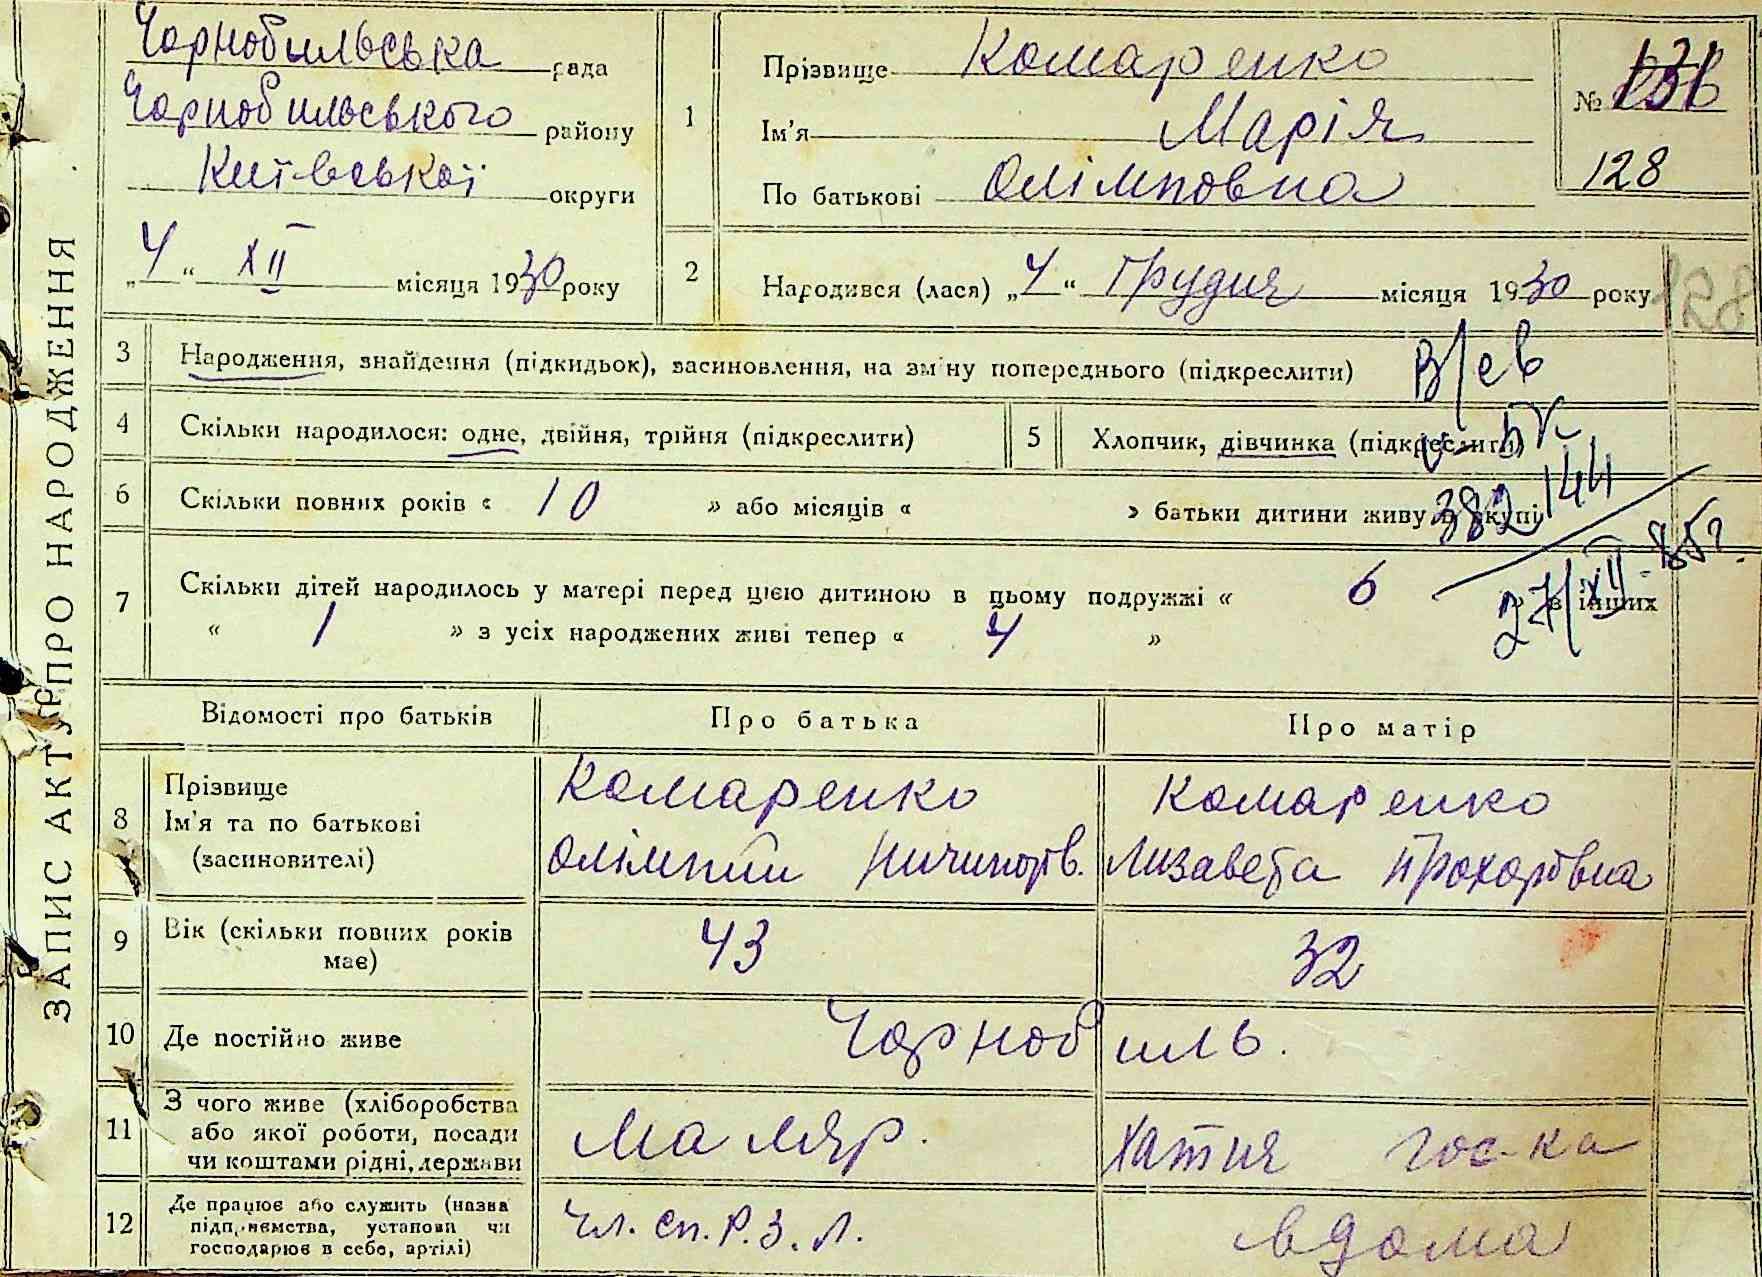 ЗАПИС АКТУ ПРО НАРОДЖЕННЯ
Чорнобильська рада
Чорнобильського району
Київської округи
„4“ XII місяця 1930 року
1
Прізвище Комаренко
Ім'я Марія
По батькові Олімповна
№
128
2
Народився (лася) „4“ Грудня місяця 1930 року
128
3 Народження, знайдення (підкидьок), засиновлення, на зміну попереднього (підкреслити)
4 Скільки народилося: одне, двійня, трійня (підкреслити)
5 Хлопчик, дівчинка (підкреслити)
6 Скільки повних років « 10 » або місяців « » батьки дитини живу вкупі
382 144
27/XII-85г.
7 Скільки дітей народилось у матері перед цією дитиною в цьому подружжі « 6 » в інших
« 1 » з усіх народжених живі тепер « 4 »
Відомості про батьків Про батька Про матір
8 Прізвище
Ім'я та по батькові
(засновителі)
Комаренко
Олімпій Ничипорів.
Комаренко
Лизавета Прохорівна
9 Вік (скільки повних років
має)
43 32
10 Де постійно живе Чорнобиль.
11 З чого живе (хліборобства
або якої роботи, посади
чи коштами рідні, держави
маляр. хатня гос-ка
12 Де працює або служить (назва
підприємства, установи чи
господарює в себе, артілі)
чл. сп. Р. З. Л. вдома